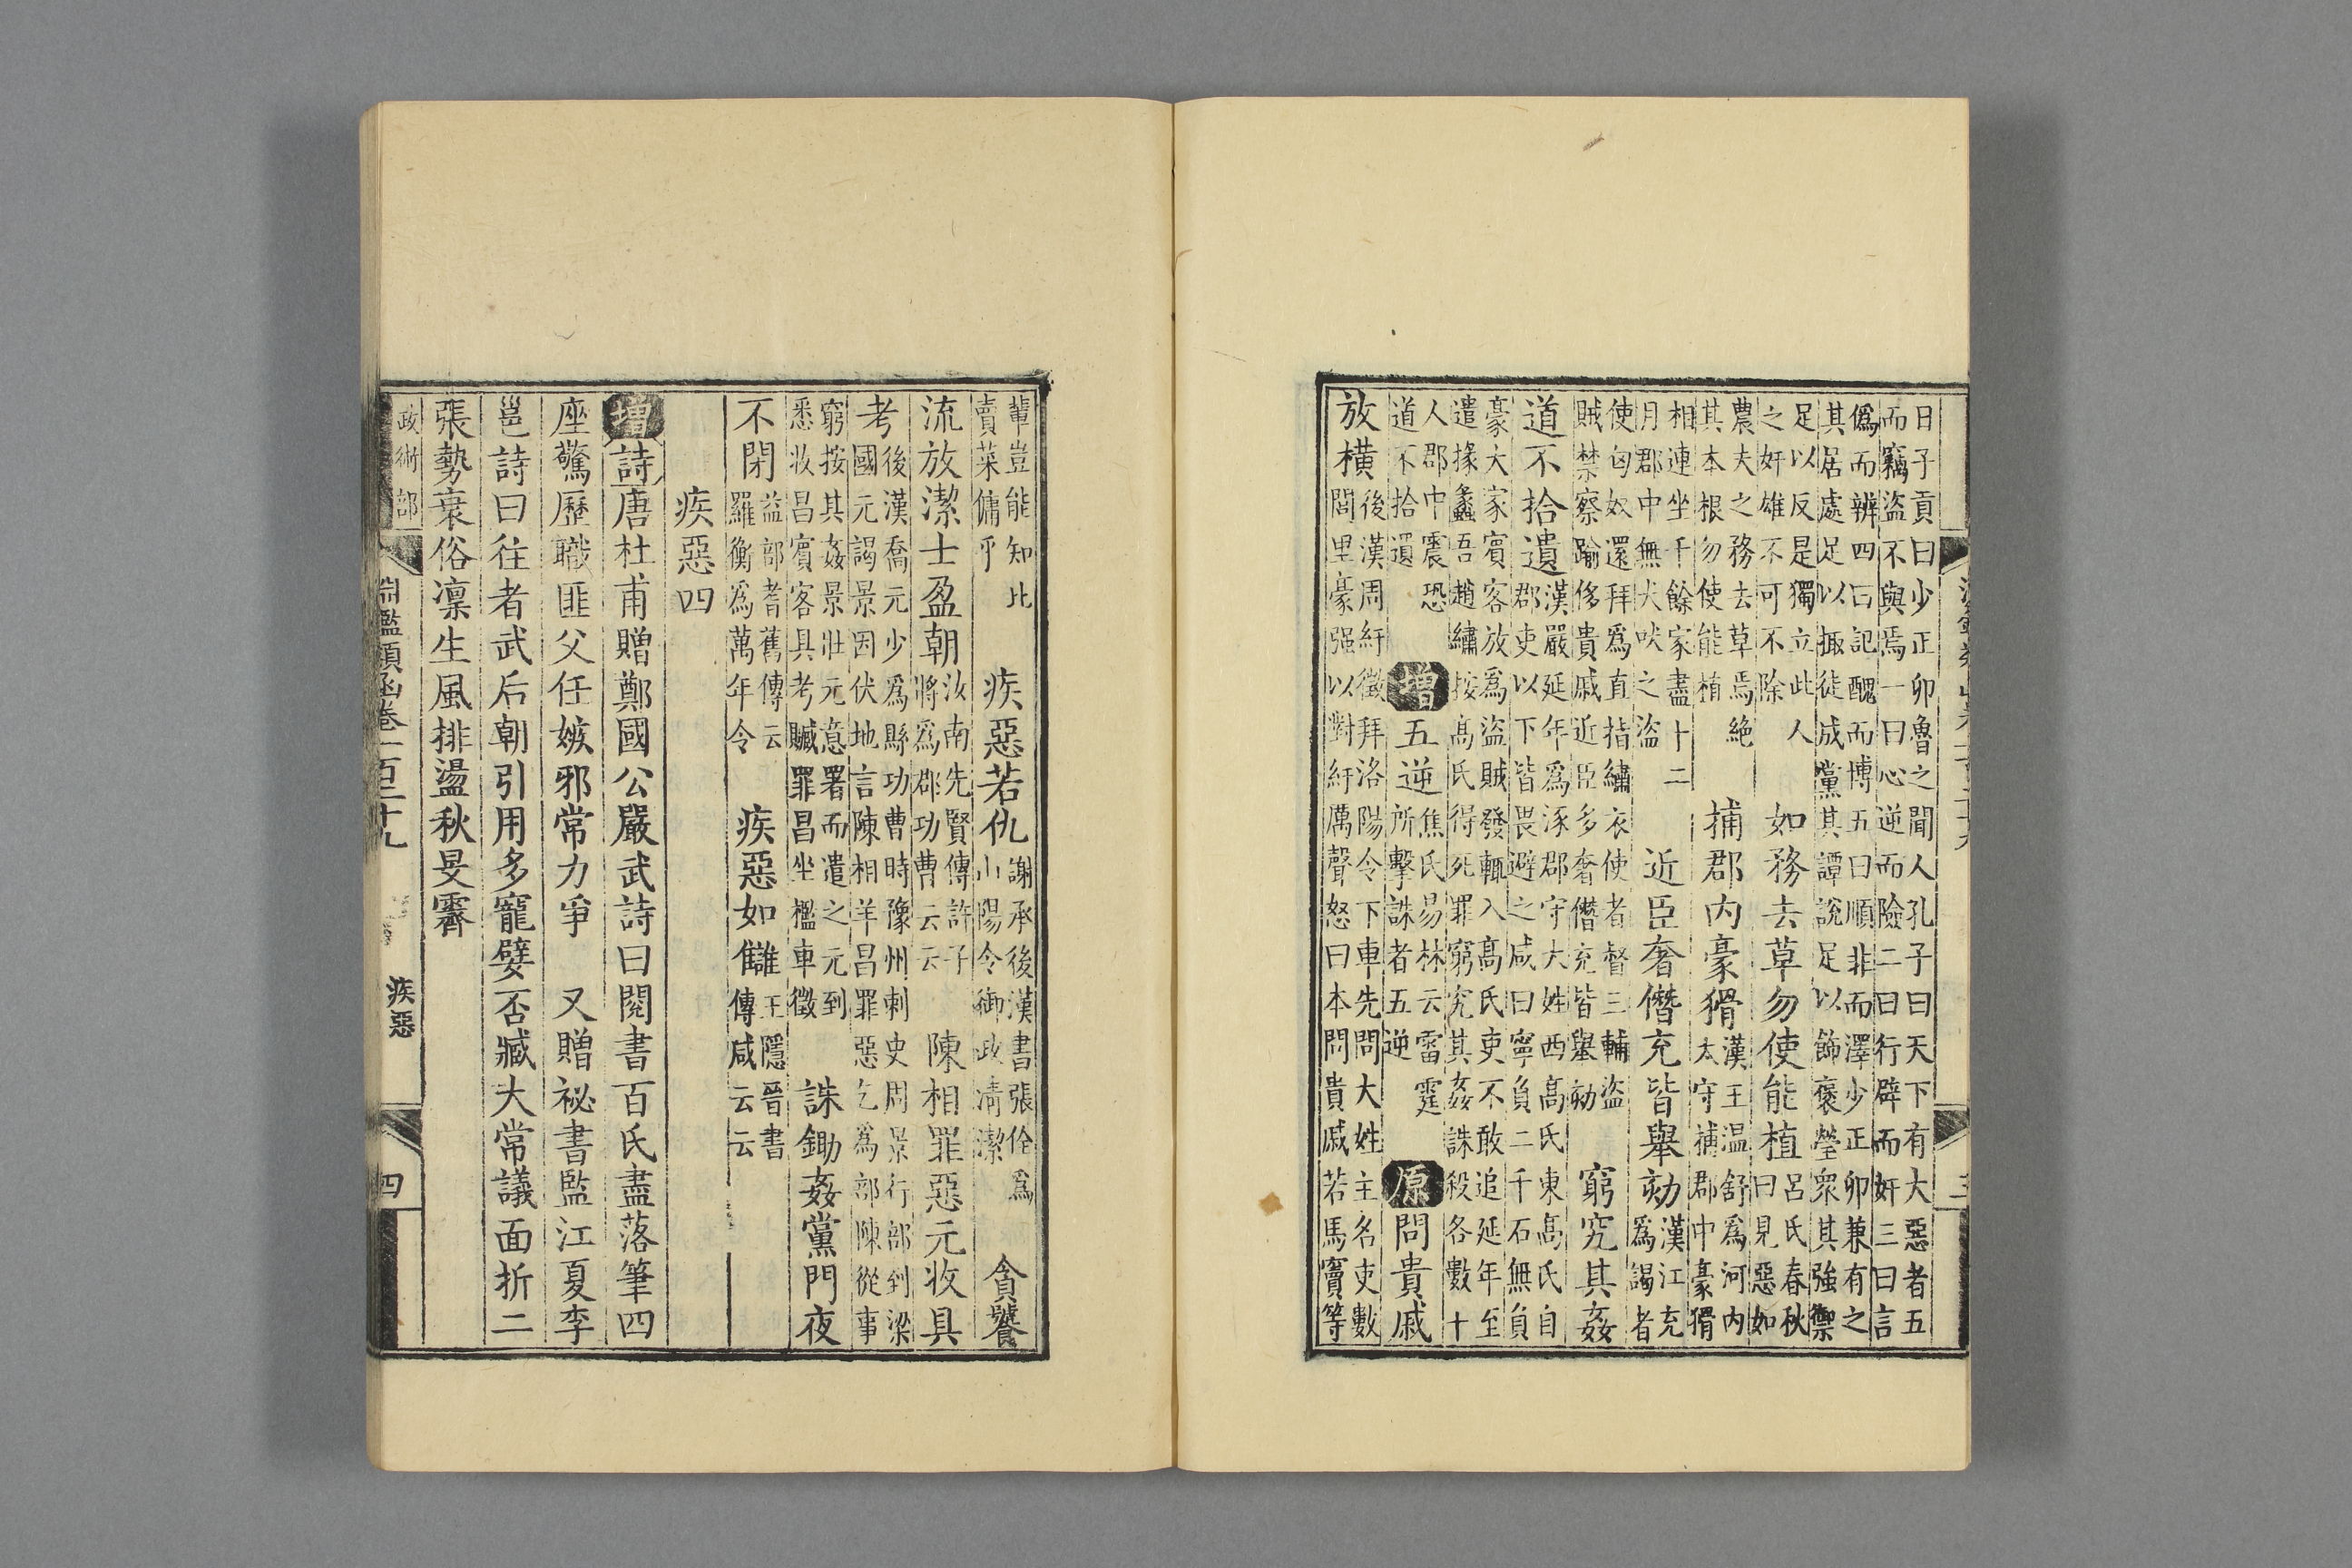 日子貢曰少正卯魯之聞人孔子曰天下有大惡者五
而竊盜不與焉一曰心逆而險二曰行辟而奸三曰言
僞而辨四曰記醜而博五曰順非而澤少正卯兼有之
其居處足以掫徒成黨其譚說足以飾褒瑩衆其強禦
足以反是獨立此人
之奸雄不可不除
如務去草勿使能植
呂氏春秋
曰見惡如
農夫之務去草焉絕
其本根勿使能植
捕郡內豪猾
漢王温舒爲河內
太守捕郡中豪猾
相連坐千餘家盡十二
月郡中無犬吠之盜
近臣奢僭充皆舉劾
漢江充
爲謁者
使匈奴還拜爲直指繡衣使者督三輔盜
賊禁察踰侈貴戚近臣多奢僭充皆舉劾
窮究其姦
道不拾遺
漢嚴延年爲涿郡守大姓西高氏東高氏自
郡吏以下皆畏避之咸曰寧負二千石無負
豪大家賓客放爲盜賊發輒入高氏吏不敢追延年至
遣掾蠡吾趙繡按高氏得死罪窮究其姦誅殺各數十
人郡中震恐
道不拾遺
增五逆
焦氏易林云雷霆
所擊誅者五逆
原問貴戚
放橫
後漢周紆徵拜洛陽令下車先問大姓主名吏數
閭里豪强以對紆厲聲怒曰本問貴戚若馬竇等
輩豈能知比
賣菜傭乎
疾惡若仇
謝承後漢書張佺爲
山陽令御政清潔
貪饕
流放潔士盈朝
汝南先賢傳許子
將爲郡功曹云云
陳相罪惡元收具
考
後漢喬元少爲縣功曹時豫州刺史周景行部到梁
國元謁景因伏地言陳相羊昌罪惡乞爲部陳從事
窮按其姦景壯元意署而遣之元到
悉收昌賓客具考贓罪昌坐檻車徵
誅鋤姦黨門夜
不閉
益部耆舊傳云
羅衡爲萬年令
疾惡如讎
王隱晉書
傅咸云云
疾惡四
增詩唐杜甫贈鄭國公嚴武詩曰閱書百氏盡落筆四
座驚歷職匪父任嫉邪常力爭　又贈祕書監江夏李
邕詩曰往者武后朝引用多寵嬖否臧大常議面折二
張勢衰俗凜生風排盪秋旻霽
政術部
淵鑑類函卷一百三十九
疾惡
四